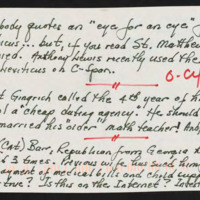 body quotes an "eye for an eye"
icus... but, if you read St. Matthew
ed. Anthony Lewis recently used the
Leviticus on C-Span.
Gingrich called the 4th year of h
ol a "cheap dating agency." He should
married his "older" math teacher!
Bob) Barr, Republican from Georgia
d 3 times. Previous wife has sued him
payment of medical bills and child supp
true? Is this on the Internet?